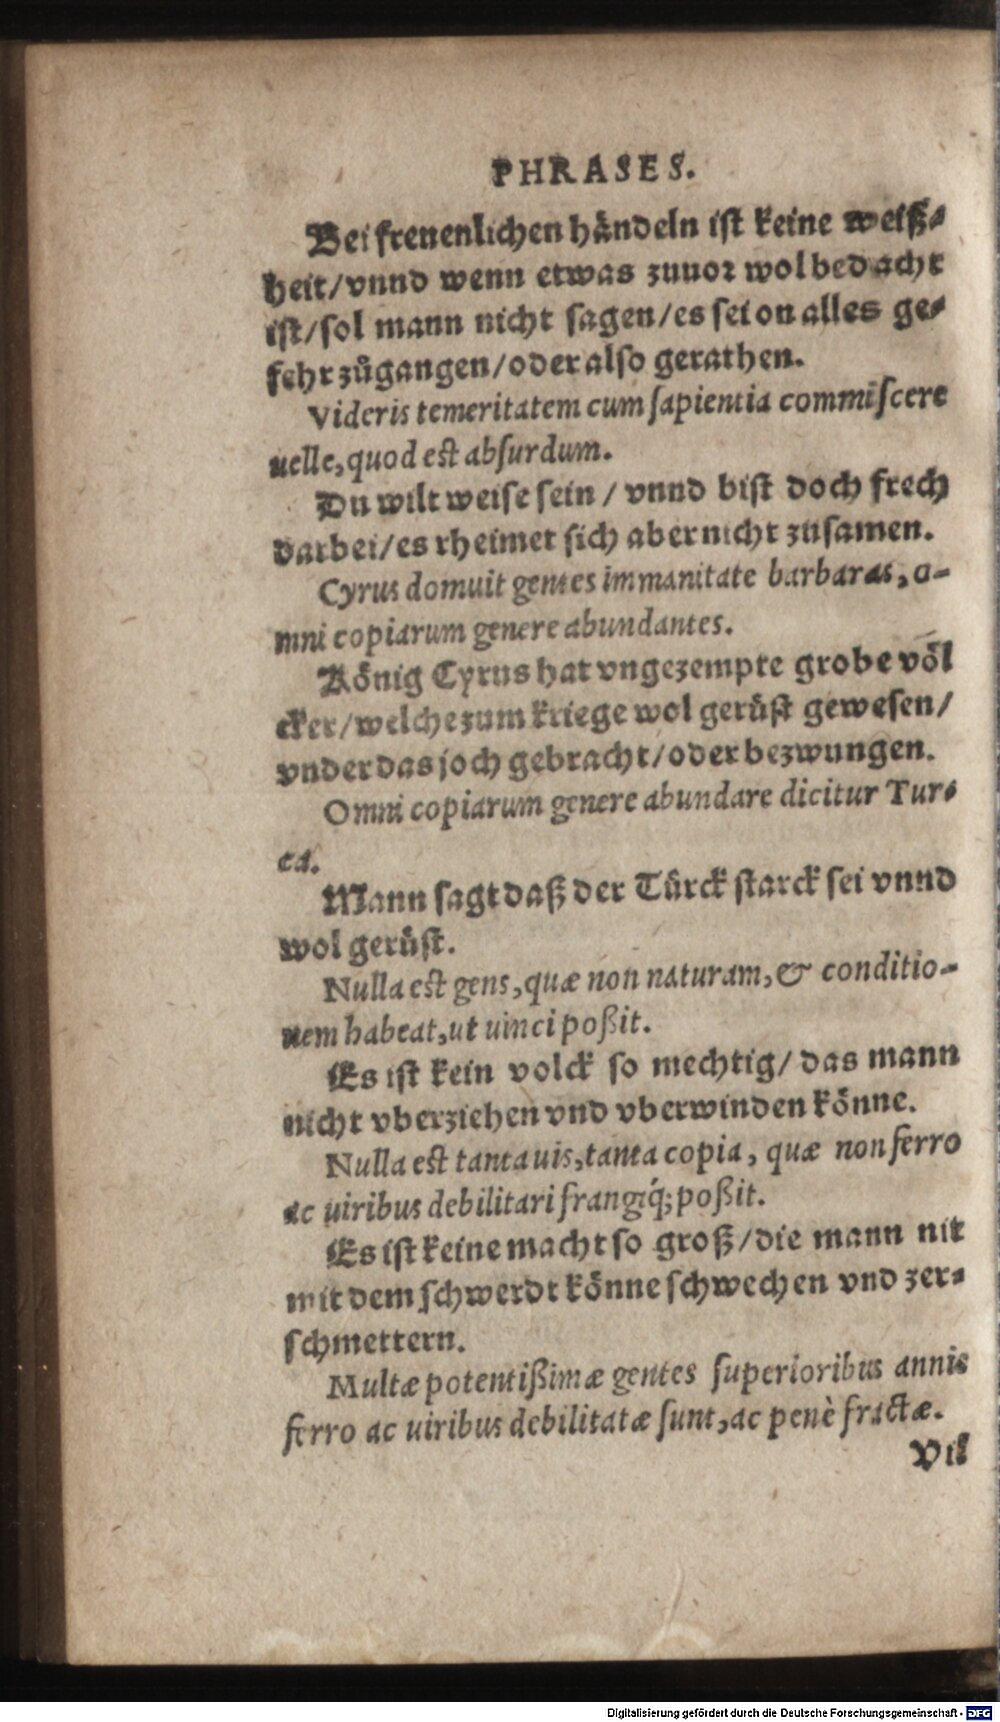 PHRASES.
Bei freuenlichen händeln ist keine weiß-
heit/vnnd wenn etwas zuuor wol bedacht
ist/sol mann nicht sagen/es sei on alles ge-
fehr zůgangen/oder also gerathen.
Videris temeritatem cum sapientia commiscere
uelle, quod est absurdum.
Du wilt weise sein / vnnd bist doch frech
darbei/es rheimet sich aber nicht zusamen.
Cyrus domuit gentes immanitate barbaras, o-
mni copiarum genere abundantes.
König Cyrus hat vngezempte grobe völ
cker/welche zum kriege wol gerüst gewesen/
vnder das joch gebracht/oder bezwungen.
Omni copiarum genere abundare dicitur Tur-
ca.
Mann sagt daß der Türck starck sei vnnd
wol gerüst.
Nulla est gens, quæ non naturam, & conditio-
nem habeat, ut uinci poßit.
Es ist kein volck so mechtig/ das mann
nicht vberziehen vnd vberwinden könne.
Nulla est tanta uis, tanta copia, quæ non ferro
ac uiribus debilitari frangiq́; poßit.
Es ist keine macht so groß/die mann nit
mit dem schwerdt könne schwechen vnd zer-
schmettern.
Multæ potentißimæ gentes superioribus annis
ferro ac uiribus debilitatæ sunt, ac penè fractæ.
Vil
Digitalisierung gefördert durch die Deutsche Forschungsgemeinschaft - DFG